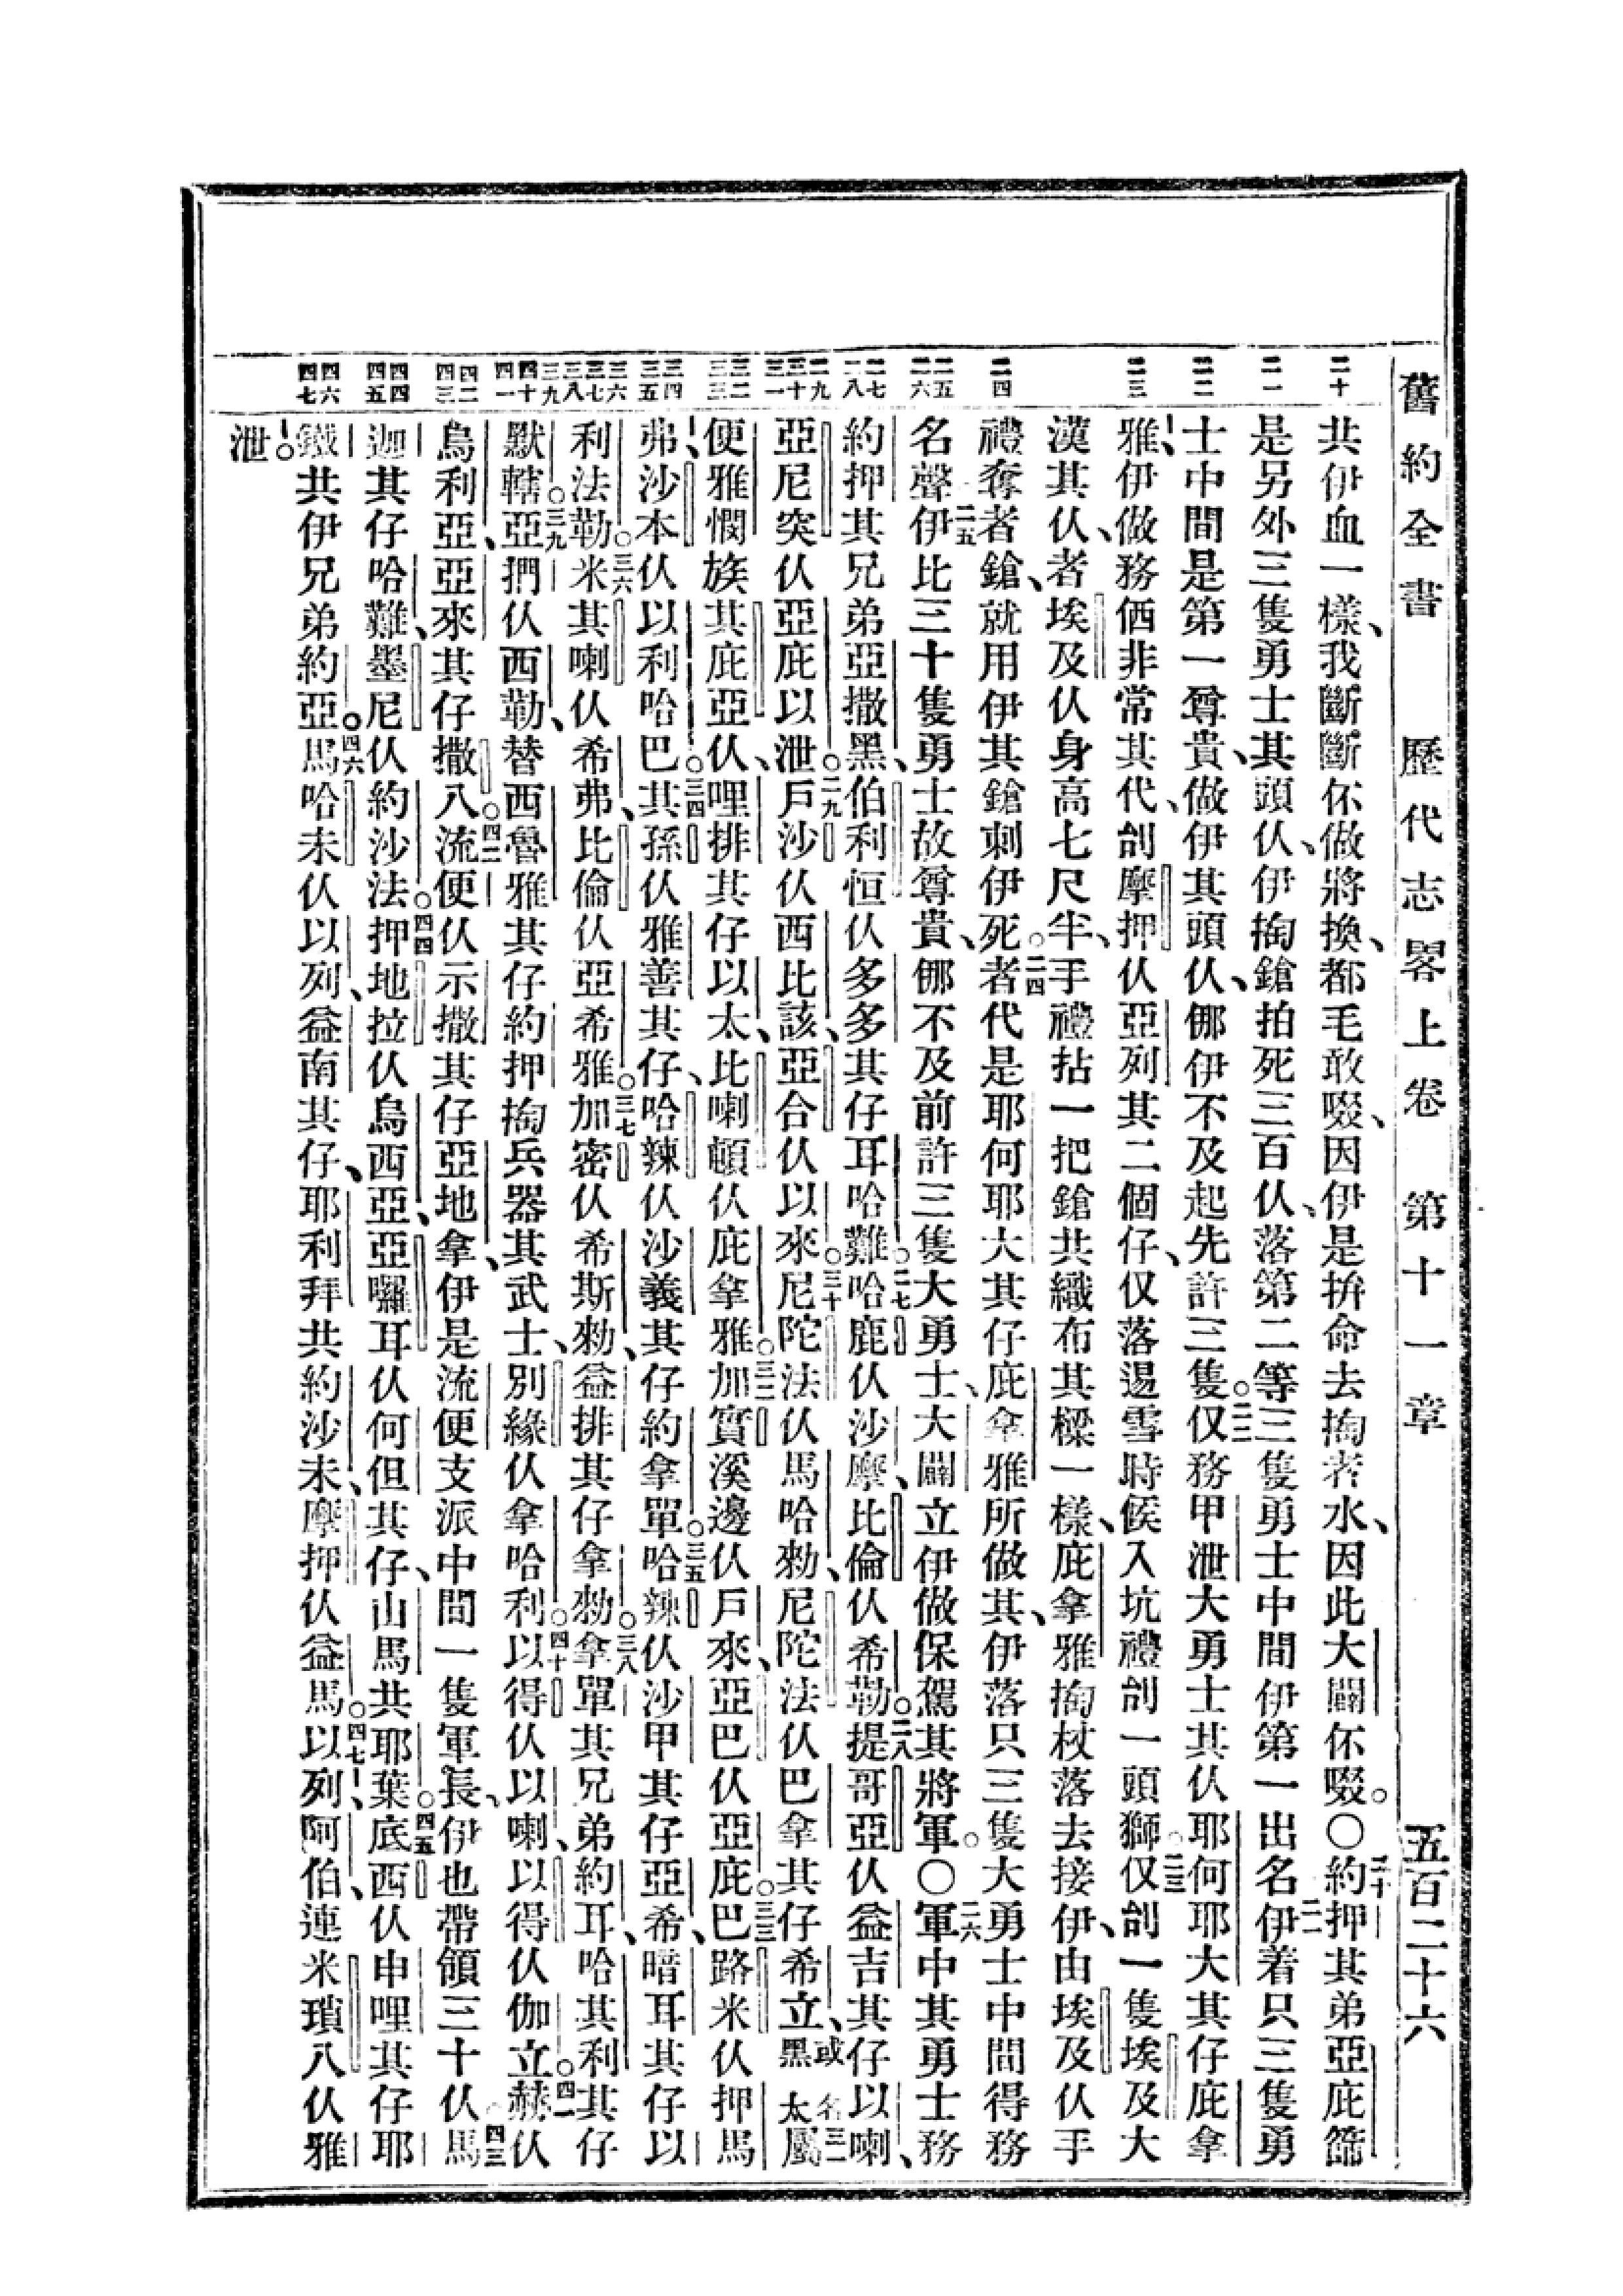 舊約全書　歷代志畧上卷　第十一章　五百二十六
二十　共伊血一樣、我斷斷伓做將換、都毛敢啜、因伊是拚命去掏者水、因此大闢伓啜。〇二十約押其弟亞庇篩
二一　是另外三隻勇士其頭仈、伊掏鎗拍死三百仈、落第二等三隻勇士中間伊第一出名二一伊着只三隻勇
二二　士中間是第一尊貴、做伊其頭仈、倗伊不及起先許三隻。二二仅務甲泄大勇士其仈耶何耶大其仔庇拿
二三　雅、伊做務価非常其代、刣摩押仈亞列其二個仔、仅落逿雪時候入坑禮刣一頭獅。二三仅刣一隻埃及大
漢其仈、者埃及仈身高七尺半、手禮拈一把鎗共織布其樑一樣、庇拿雅掏杖落去接伊、由埃及仈手
二四　禮奪者鎗、就用伊其鎗刺伊死。二四者代是耶何耶大其仔庇拿雅所做其、伊落只三隻大勇士中間得務
二五　二六　名聲二五伊比三十隻勇士故尊貴、倗不及前許三隻大勇士、大闢立伊做保駕其將軍。〇二六軍中其勇士務
二七　二八　約押其兄弟亞撒黑、伯利恒仈多多其仔耳哈難。二七哈鹿仈沙摩、比倫仈希勒。二八提哥亞仈益吉其仔以喇、
二九　三十　三一　亞尼突仈亞庇以泄。二九戶沙仈西比該、亞合仈以來。三十尼陀法仈馬哈勑、尼陀法仈巴拿其仔希立、或名黑太三一屬
三二　三三　便雅憫族其庇亞仈、哩排其仔以太、比喇頓仈庇拿雅。三二加實溪邊仈戶來、亞巴仈亞庇。三三巴路米仈押馬
三四　三五　弗、沙本仈以利哈巴。三四其孫仈雅善其仔、哈辣仈沙義其仔約拿單。三五哈辣仈沙甲其仔亞希暗、耳其仔以
三六　三七　三八　三九　利法勒。三六米其喇仈希弗、比倫仈亞希雅。三七加密仈希斯勑、益排其仔拿勑。三八拿單其兄弟約耳、哈其利其仔
四十　四一　默轄。三九亞捫仈西勒、替西魯雅其仔約押掏兵器其武士、別緣仈拿哈利。四十以得仈以喇、以得仈伽立。四一赫仈
四二　四三　烏利亞、亞來其仔撒八。四二流便仈示撒其仔亞地拿、伊是流便支派中間一隻軍長、伊也帶領三十仈。四三馬
四四　四五　迦其仔哈難、墨尼仈約沙法。四四押地拉仈烏西亞、亞囉耳仈何但其仔、山馬共耶葉。四五底西仈申哩其仔耶
四六　四七　鐵共伊兄弟約亞。四六馬哈未仈以列、益南其仔、耶利拜共約沙未、摩押仈益馬。四七以列、阿伯、連米瑣八仈雅
泄。